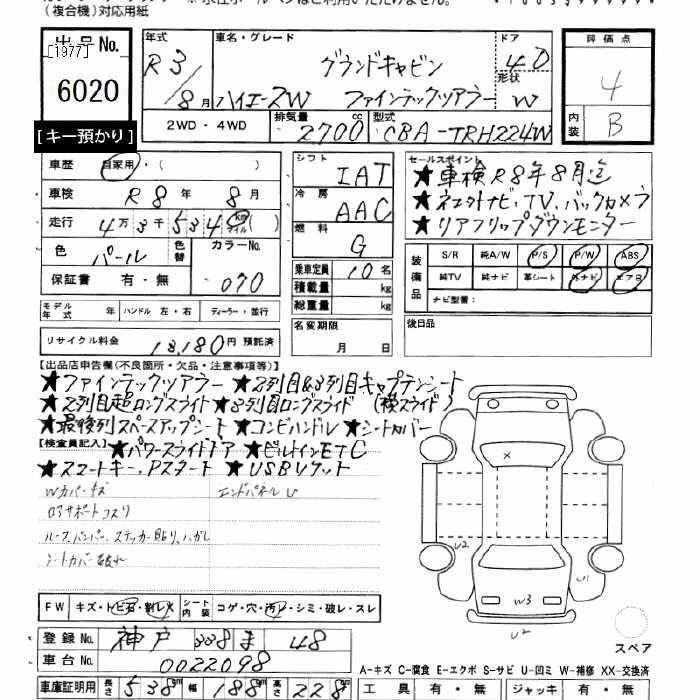 (複合機)対応用紙
出品No.
[1977]
6020
[キー預かり]
年式
R3/8月
車名・グレード
グランドキャビン
ハイエースW ファインテックツアラー
ドア
4D
形状
W
評価点
4
内装
B
2WD・4WD
排気量
2700cc
型式
CBA-TRH224W
車歴 自家用・( )
車検 R8年8月
走行 4万3千534 km マイル ( )
色 パール 色替 カラーNo. 070
保証書 有・無
シフト IAT
冷房 AAC
燃料 G
乗車定員 10名
積載量 kg
総重量 kg
セールスポイント
★車検R8年8月迄
★社外ナビ、TV、バックカメラ
★リアフリップダウンモニター
装備品
S/R 純A/W P/S P/W ABS
純TV 純ナビ 革シート 外ナビ エアB
ナビ型番:
モデル年式 年 ハンドル 左・右 ディーラー・並行
リサイクル料金 13,180円 預託済
名変期限
月 日
後日品
【出品店申告欄(不良箇所・欠品・注意事項等)】
★ファインテックツアラー ★2列目&3列目キャプテンシート
★2列目超ロングスライド ★3列目ロングスライド (横スライド)
★最後列スペースアップシート ★コンビハンドル ★シートカバー
【検査員記入】
★パワースライドドア ★ビルトインETC
★スマートキー、Pスタート ★USBソケット
Wカバーキズ エンドパネルU
ロアサポートコスリ
ルーフ、バンパー、ステッカー貼り、ハガレ
シートカバー破れ
X
U2
U1
W3
U2
スペア
FW キズ・トビ石・割レX シート内装 コゲ・穴・汚レ・シミ・破レ・スレ
登録No. 神戸 338 ま 48
車台No. 0022098
車庫証明用 長さ 538cm 幅 188cm 高さ 228cm
A-キズ C-腐食 E-エクボ S-サビ U-凹ミ W-補修 XX-交換済
工具 有・無 ジャッキ 有・無